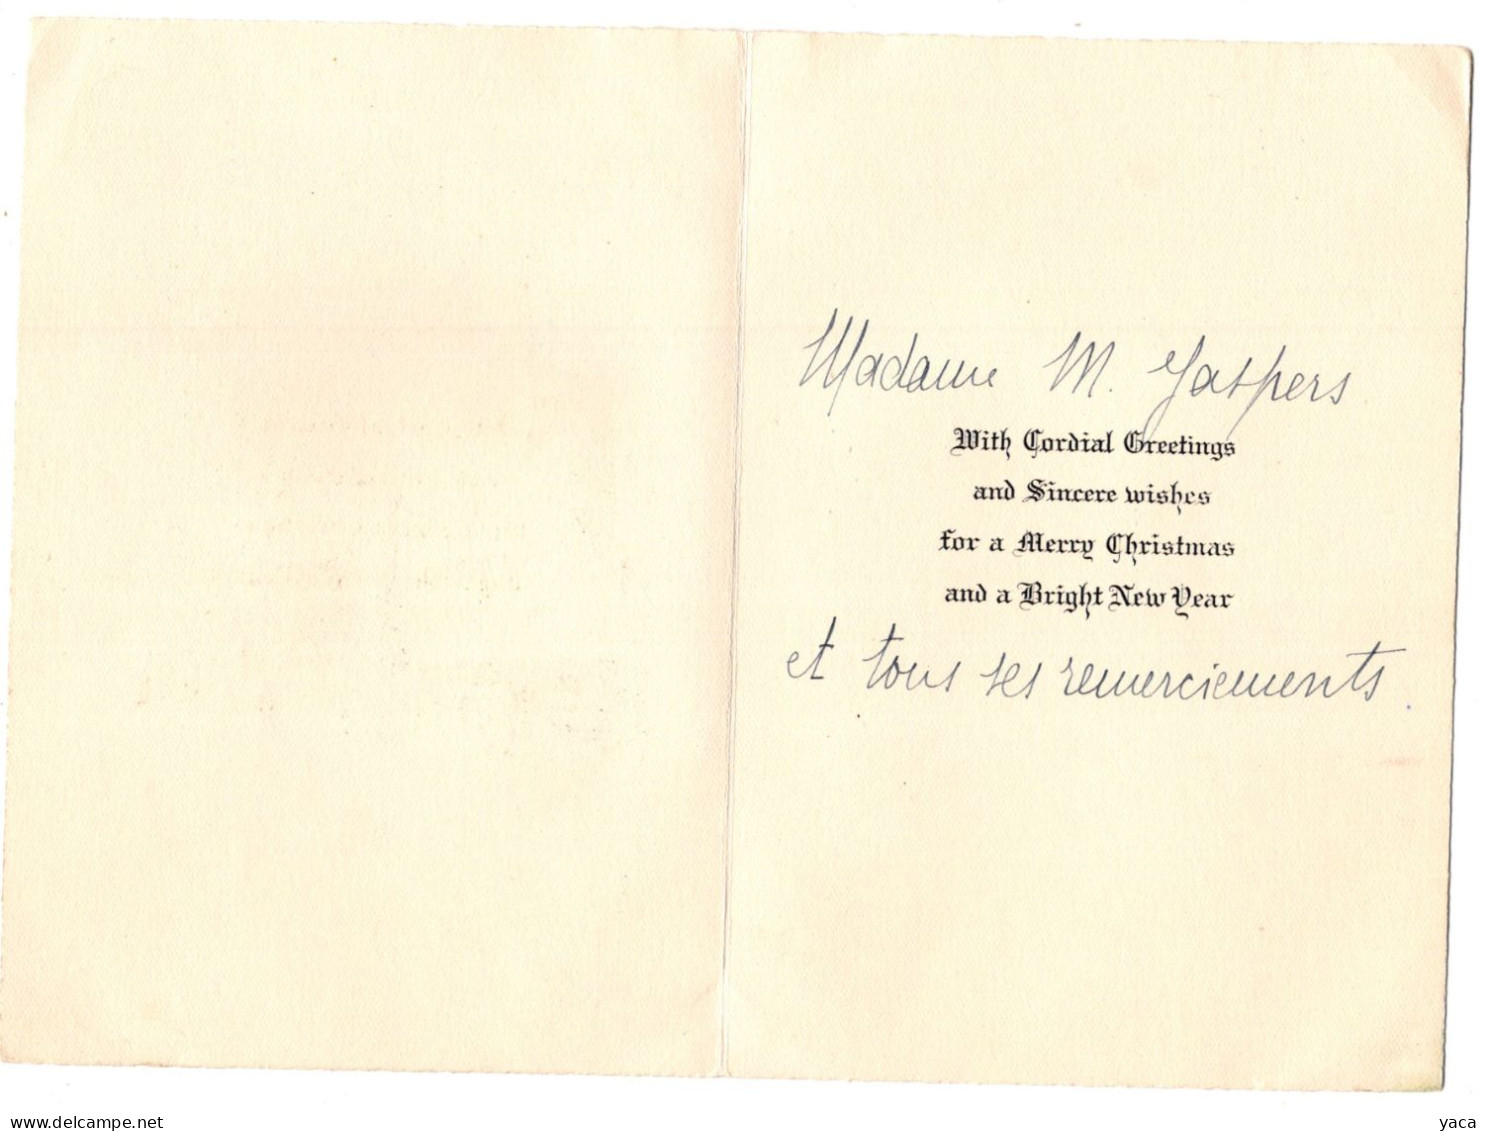 Madame M. Jaspers
With Cordial Greetings
and Sincere wishes
for a Merry Christmas
and a Bright New Year
et tous ses remerciements
www.delcampe.net
yaca